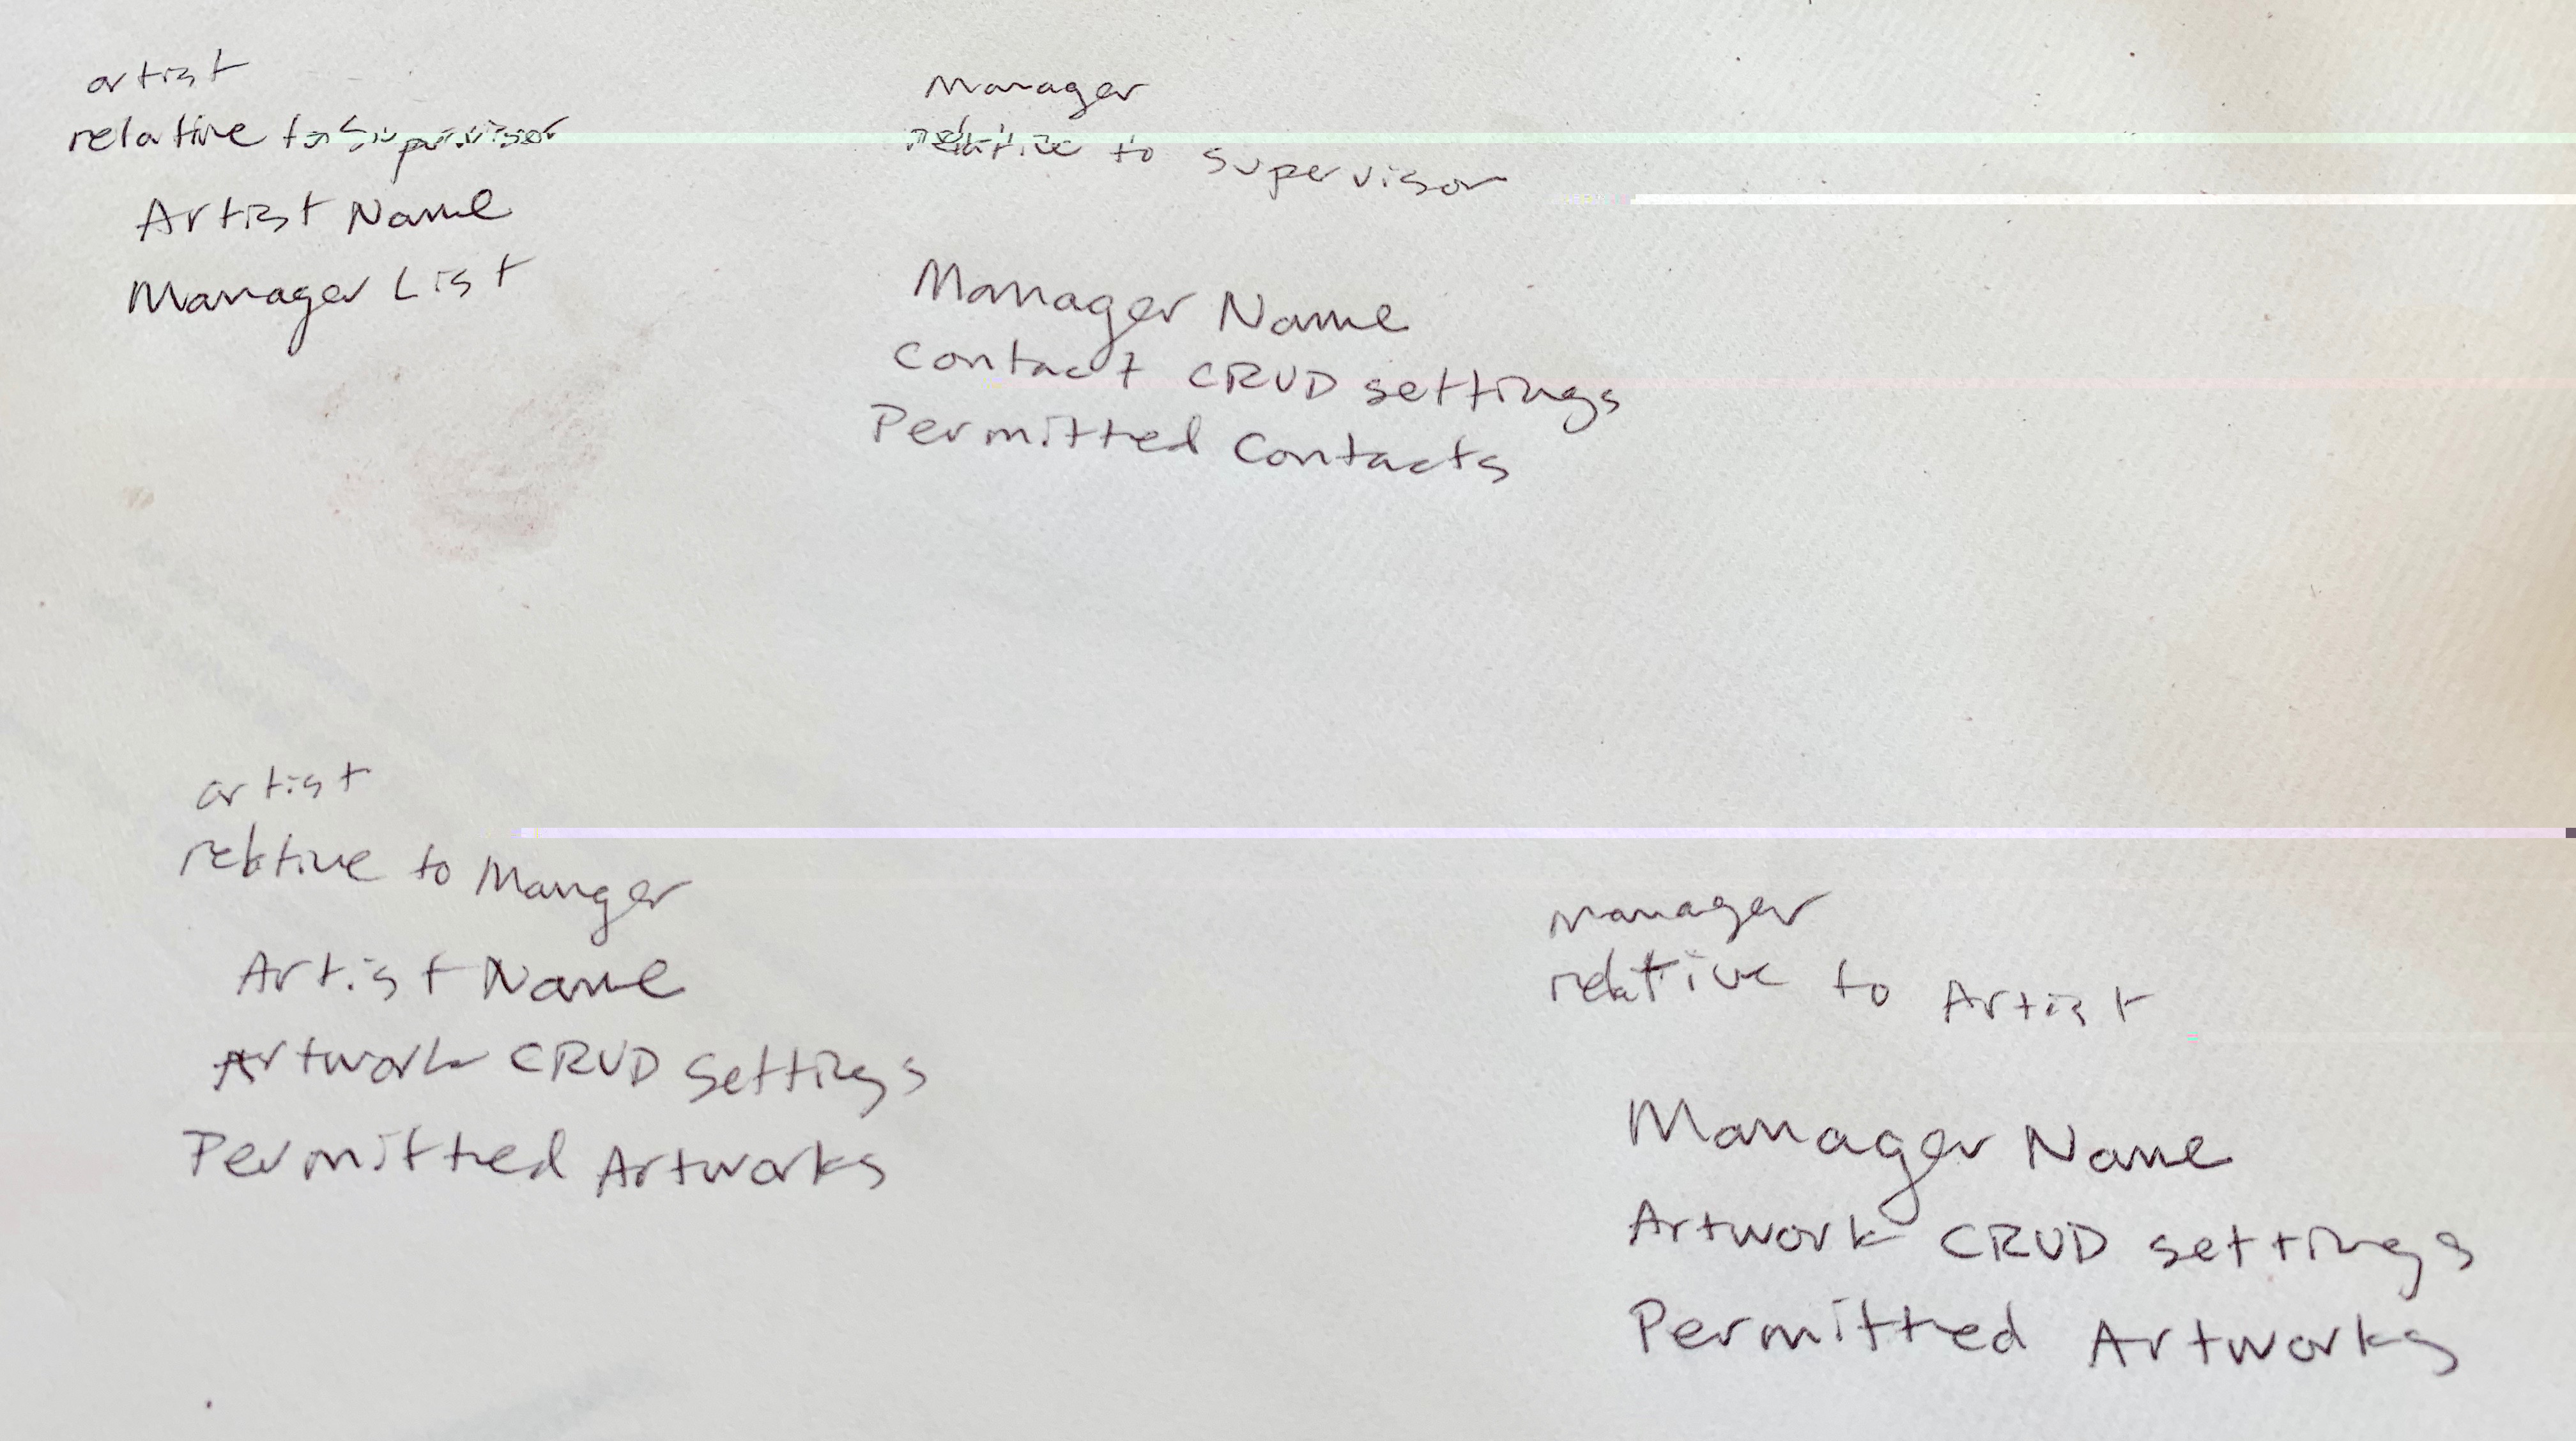 artist
relative to Supervisor
Artist Name
Manager List
Manager
relative to supervisor
Manager Name
Contact CRUD settings
Permitted Contacts
artist
relative to Manger
Artist Name
Artwork CRUD Settings
Permitted Artworks
Manager
relative to Artist
Manager Name
Artwork CRUD settings
Permitted Artworks